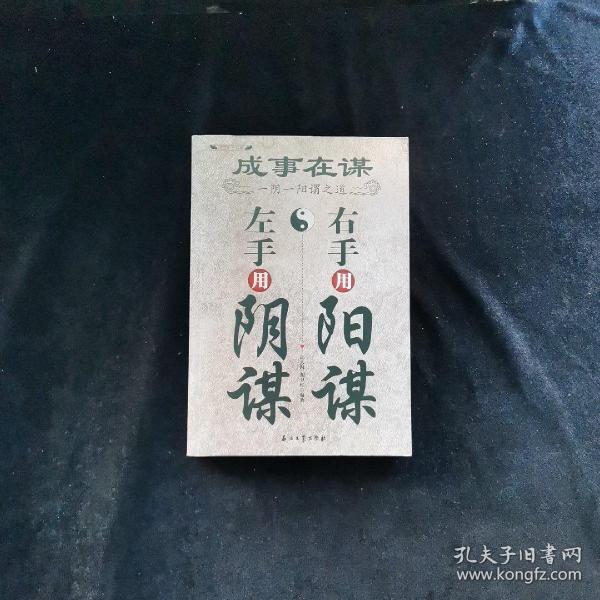 成事在谋
一阴一阳谓之道
右手用阳谋
左手用阴谋
石油工业出版社
孔夫子旧书网
www.kongfz.com